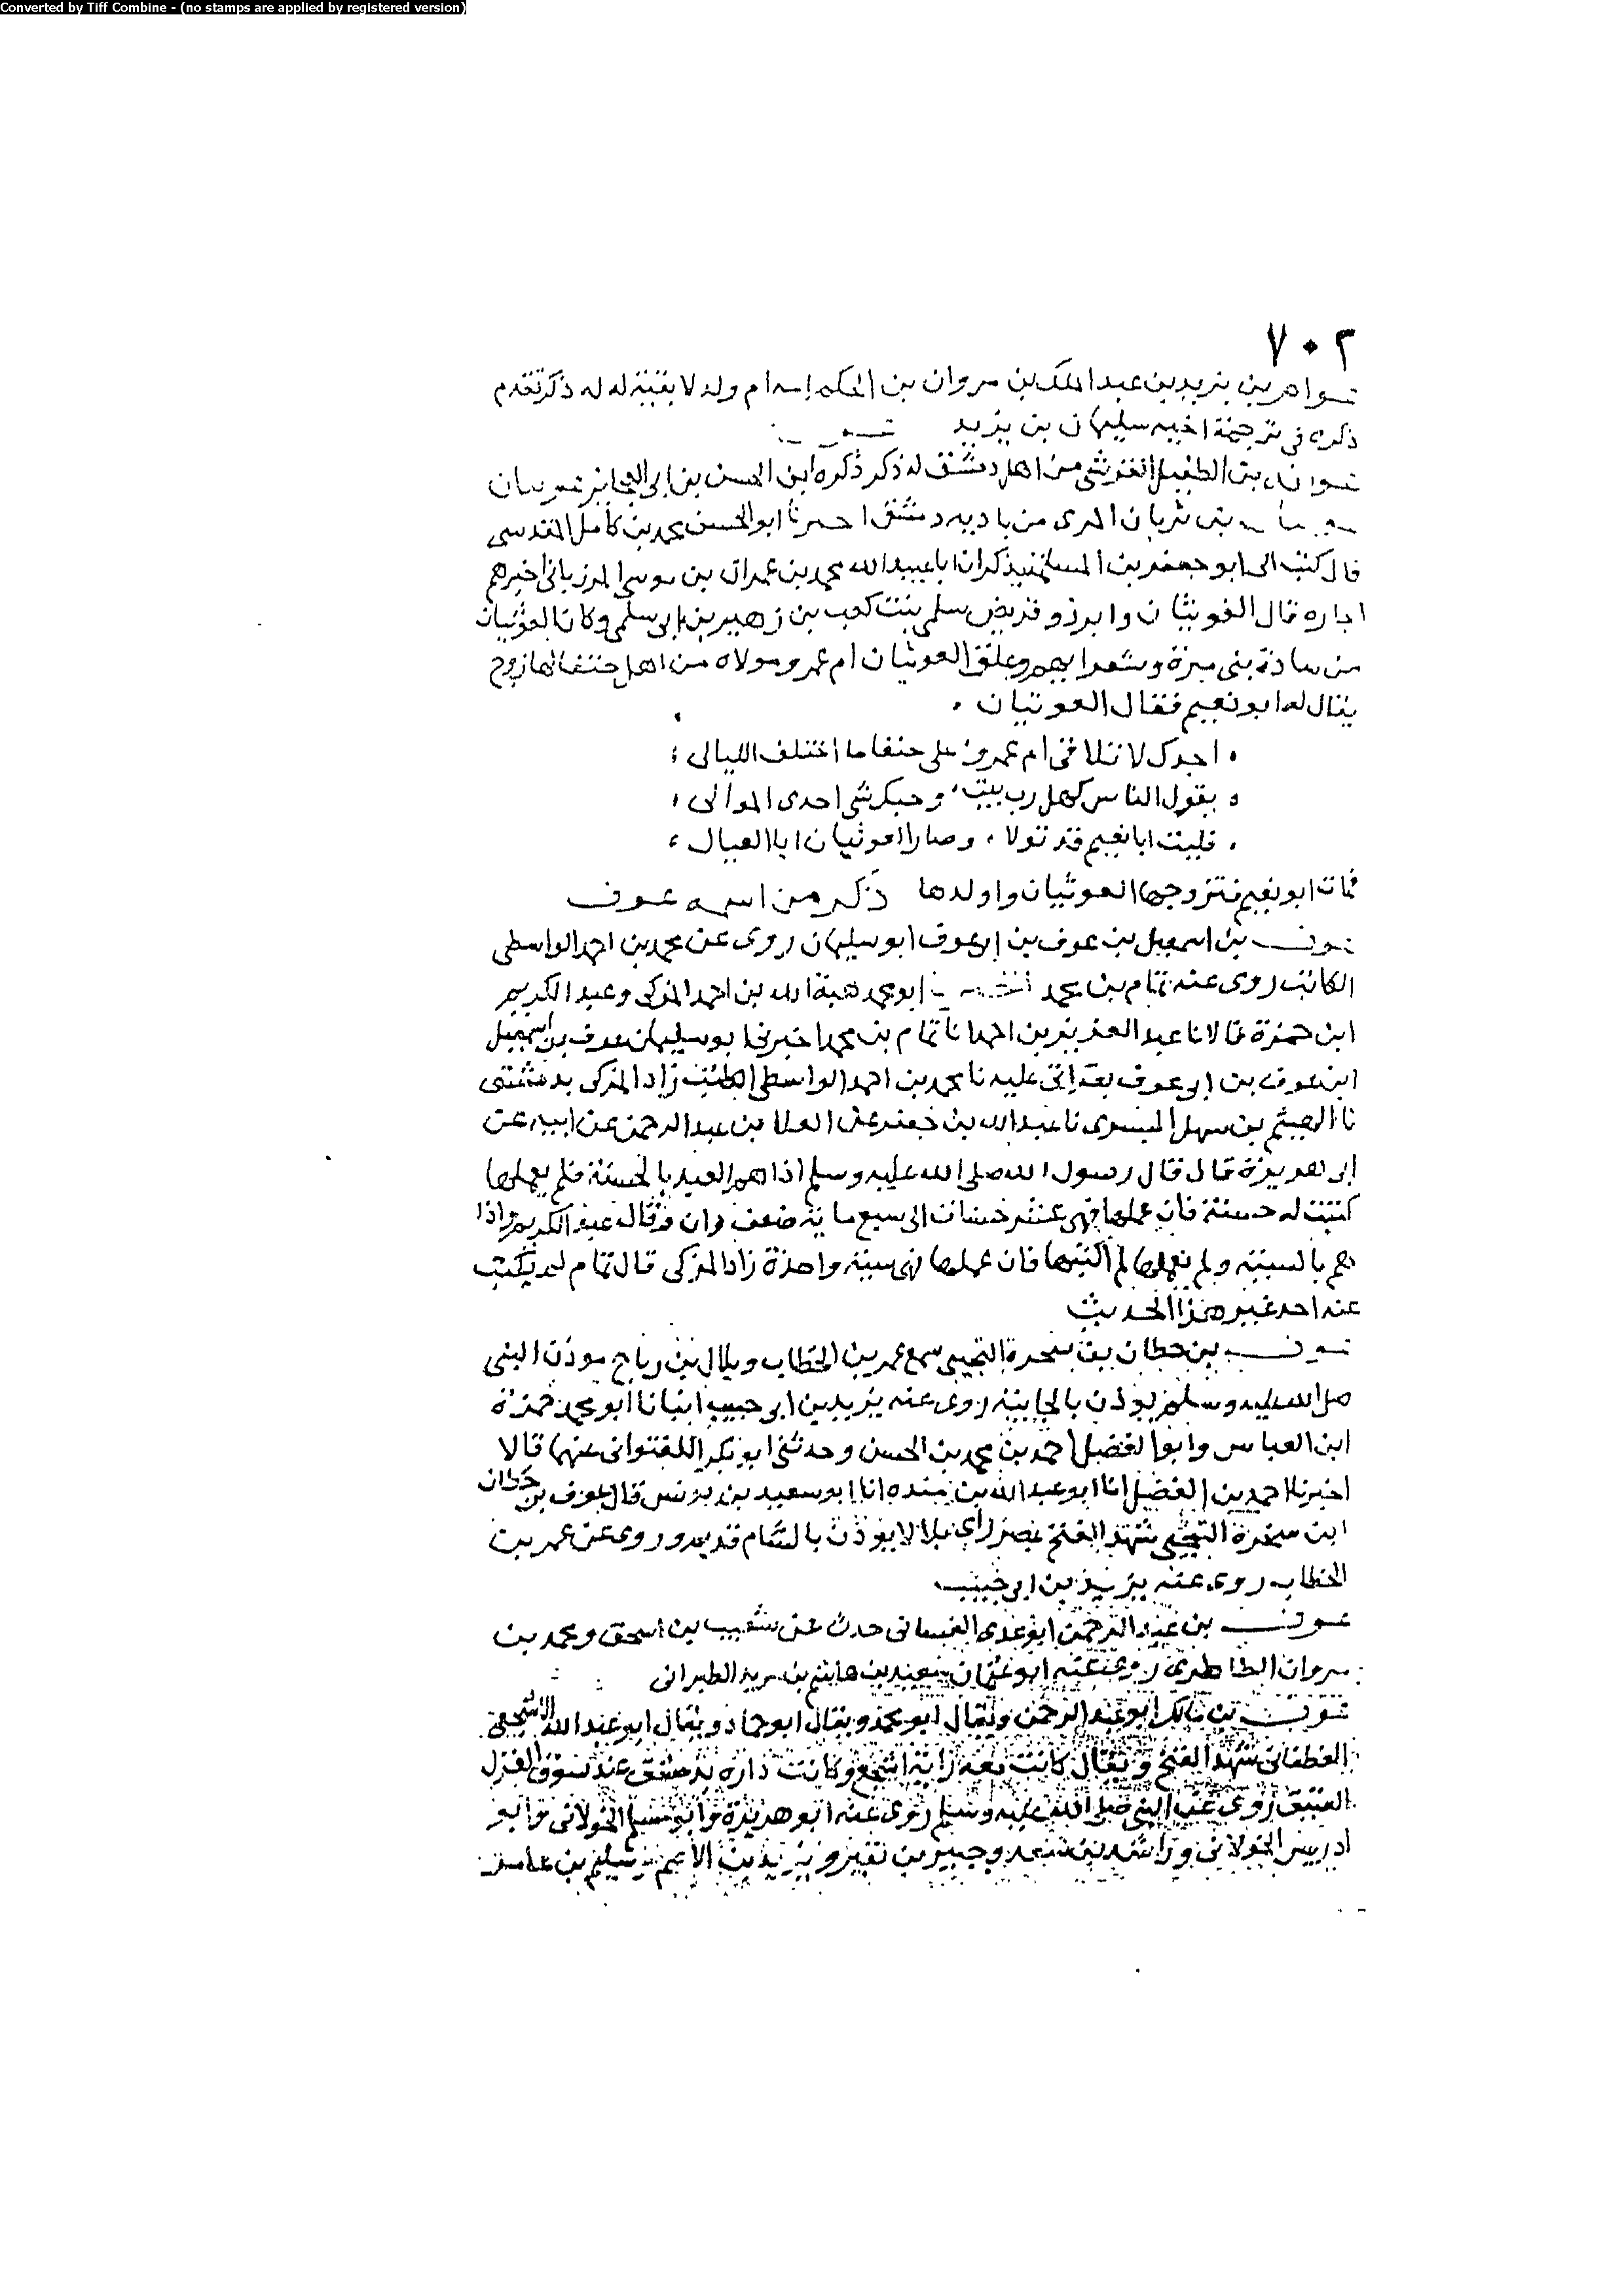 Converted by Tiff Combine - (no stamps are applied by registered version)
٧٠٢
بن يزيد بن عبد الملك بن مروان بن الحكم امه ام ولد لا بقية له له ذكر تقدم
ذكره فى ترجمة اخيه سليمان بن يزيد
بن الطفيل من اهل دمشق له ذكر ذكره ابن الحسن بن ابى العجايز
بن شريان المرى من باديه دمشق ابو الحسن محمد بن كامل المقدسى
قال كتب الى ابو جعفر بن المسلمة يذكر ان ابا عبيد الله محمد بن عمران بن موسى المرزبانى اخبرهم
اجازه قال العوثبان سلمى بنت كعب بن زهير بن ابى سلمى وكان العوثبان
من سادة بنى مرة وعلق العوثبان ام عمرو مولاه من اهل لها زوج
يقال له ابو نعيم فقال العوثبان
اجدك لا تلاقى ام عمرو على حنفا ما اختلف الليالى
يقول الناس كهل رب بيت احدى الموالى
فليت ابا نعيم قد تولا وصار العوثبان ابا العيال
فمات ابو نعيم فتزوجها العوثبان واولدها ذكر من اسمه عوف
بن اسمعيل بن عوف بن ابى عوف ابو سليمان روى عن محمد بن احمد الواسطى
الكاتب روى عنه تمام بن محمد ابو محمد هبة الله بن احمد المزكى وعبد الكريم
ابن حمزة قالا نا عبد العزيز بن احمد انا تمام بن محمد اخبرنى ابو سليمان عوف بن اسمعيل
ابن عوف بن ابى عوف عليه نا محمد بن احمد الواسطى الكاتب زاد المزكى بدمشق
نا الهيثم بن سهل نا عبد الله بن جعفر عن العلا بن عبد الرحمن عن ابيه عن
ابى هريرة قال قال رسول الله صلى الله عليه وسلم اذا هم العبد بالحسنة فلم يعملها
كتبت له حسنة فان عملها فهى عشر حسنات الى سبع ماية ضعف وان وقال عبد الكريم واذا
هم بالسيئة ولم يعملها لم اكتبها فان عملها فهى سيئة واحدة زاد المزكى قال تمام لم يكتب
عنه احد غير هذا الحديث
بن حطان بن التجيبى سمع عمر بن الخطاب وبلال بن رباح موذن النبى
صلى الله عليه وسلم يوذن بالجابية روى عنه يزيد بن ابى حبيب انبانا ابو محمد حمزة
ابن العباس وابو الفضل احمد بن محمد بن الحسن وحدثنى ابو بكر اللفتوانى عنهما قالا
اخبرنا احمد بن الفضل انا ابو عبد الله بن منده انا ابو سعيد بن يونس قال عوف بن حطان
ابن التجيبى شهد الفتح بمصر راى بلالا يوذن بالشام قديم وروى عن عمر بن
الخطاب روى عنه يزيد بن ابى حبيب
عوف بن عبد الرحمن ابو عدى الغسانى حدث عن شعيب بن اسحق ومحمد بن
مروان الطاطرى روى عنه ابو عثمان سعيد بن هاشم بن مريد الطبرانى
عوف بن مالك ابو عبد الرحمن ويقال ابو محمد ويقال ابو حماد ويقال ابو عبد الله الاشجعى
الغطفانى شهد الفتح ويقال كانت معه راية اشجع وكانت داره بدمشق عند سوق الغزل
العتيق روى عن النبى صلى الله عليه وسلم روى عنه ابو هريرة وابو مسلم الخولانى وابو
ادريس الخولانى وراشد بن سعد وجبير بن نفير ويزيد بن الاصم وسليم بن عامر